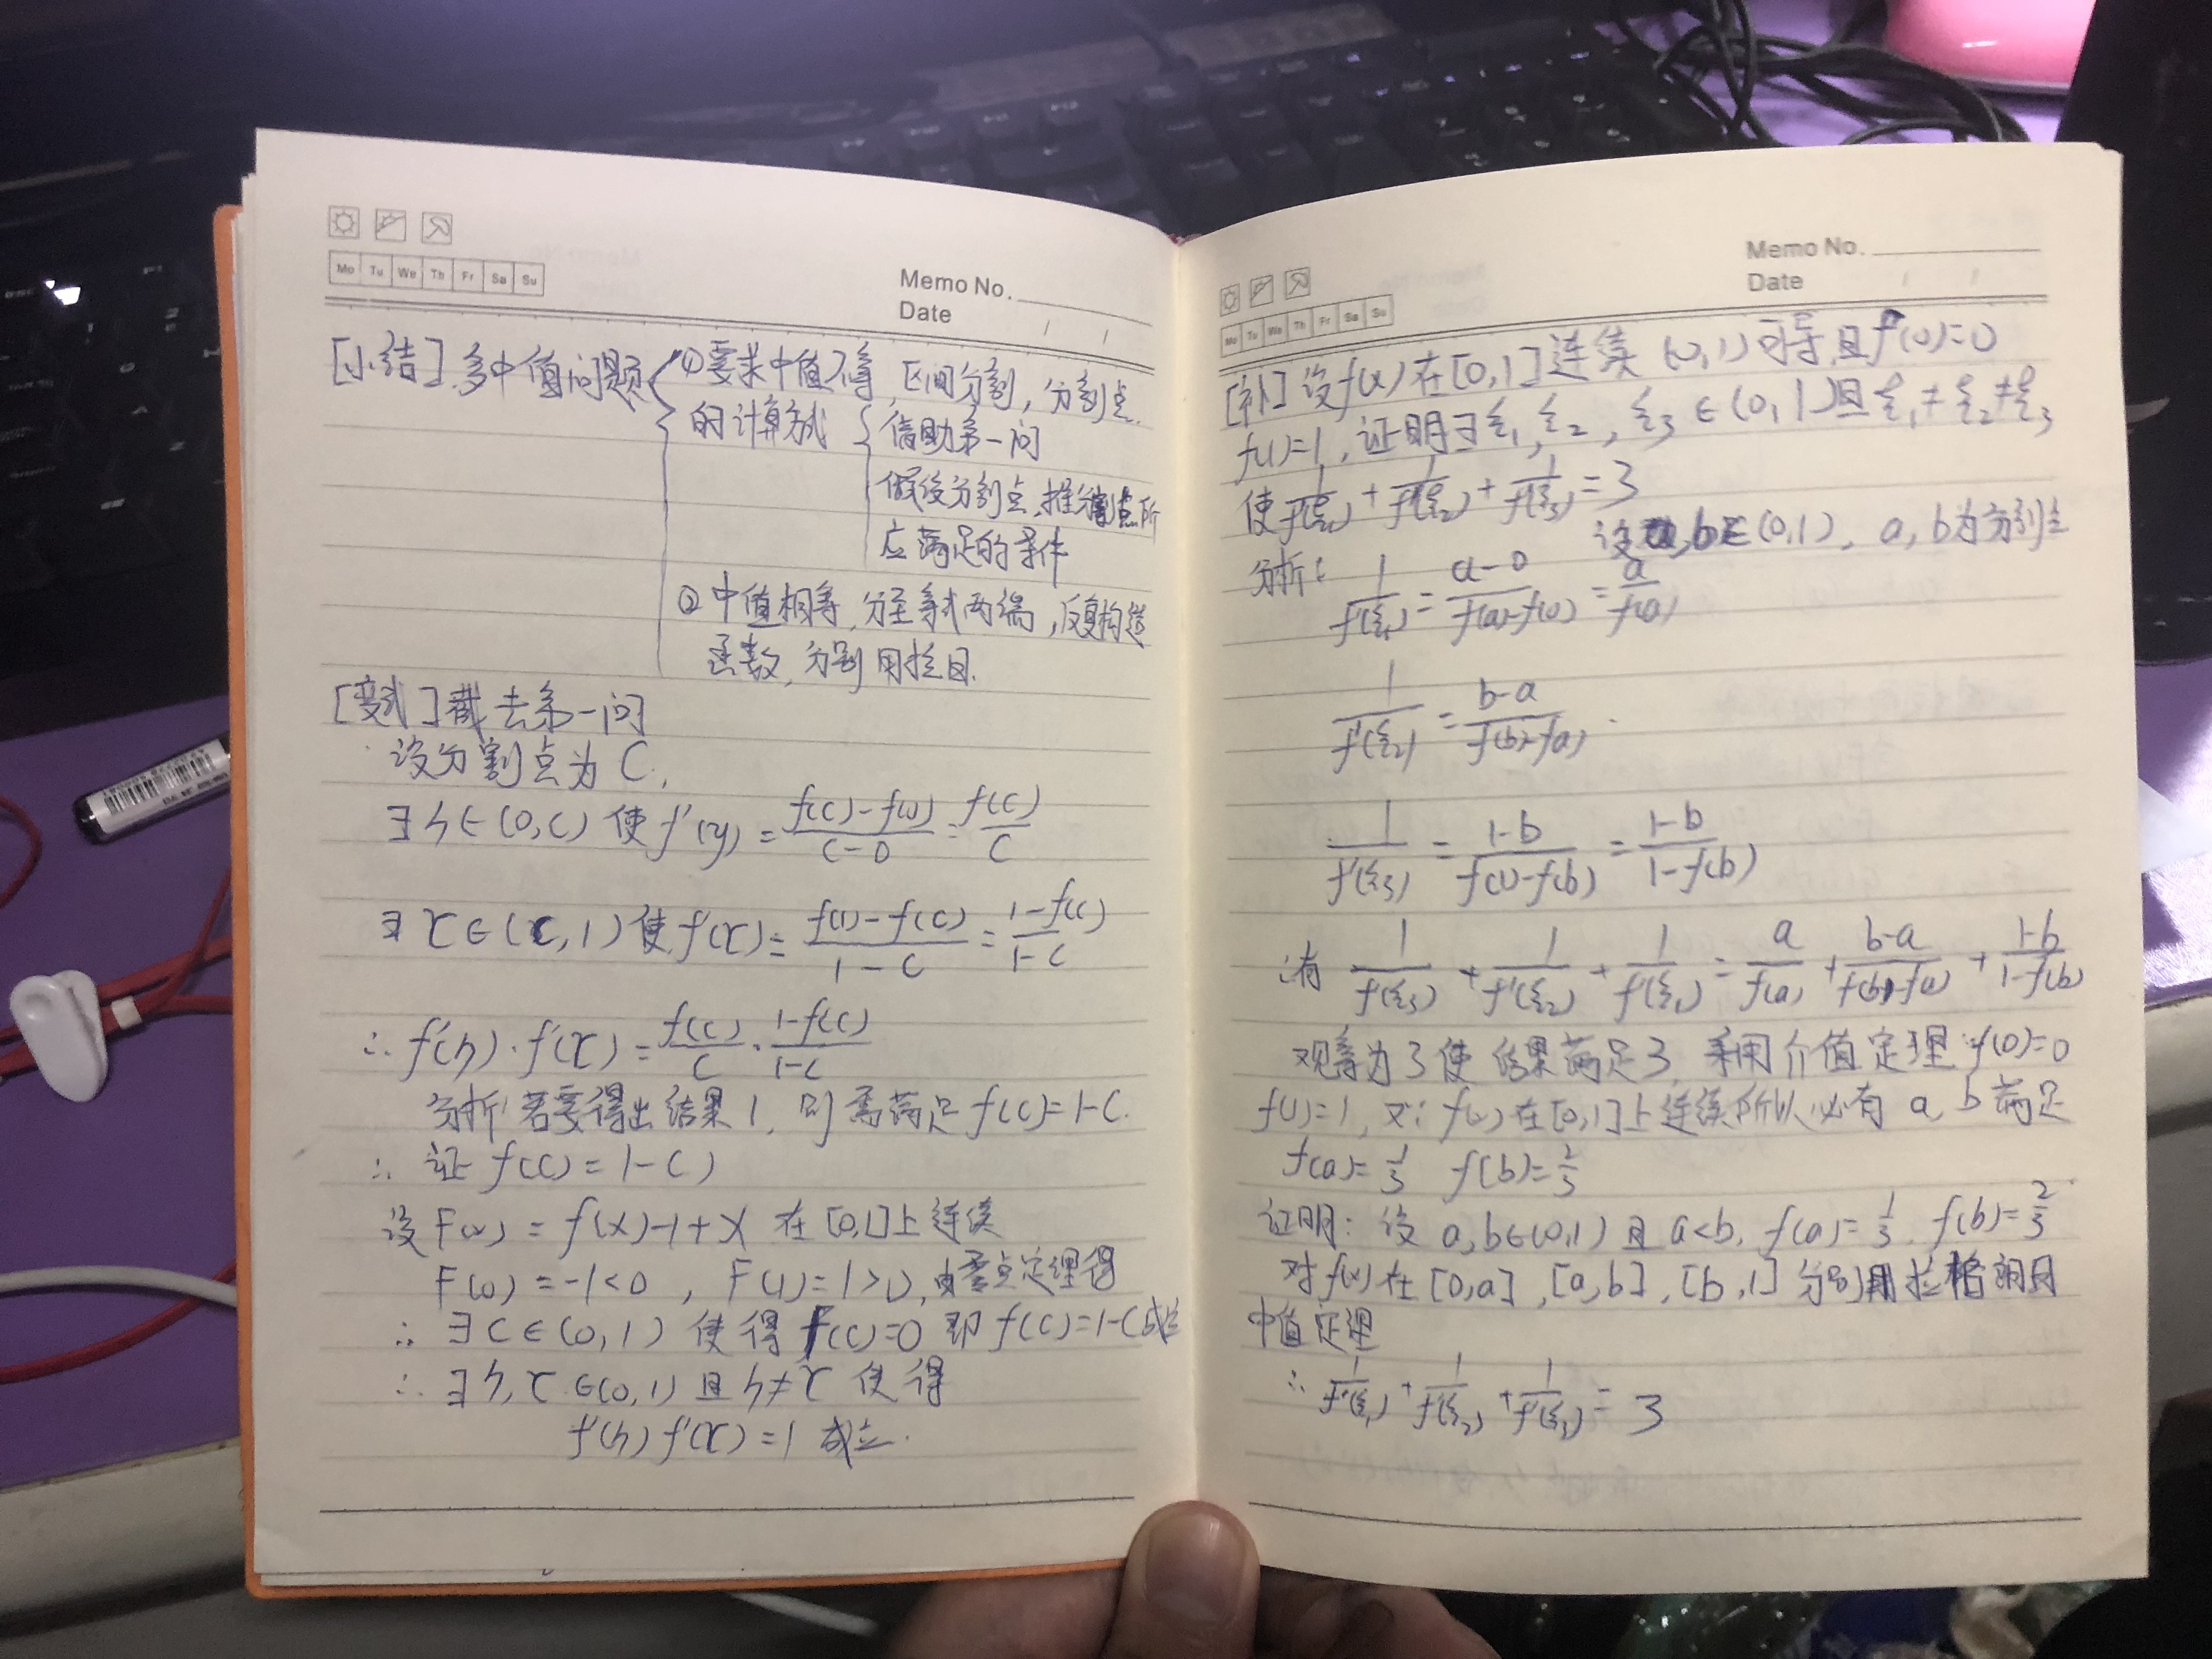 Mo Tu We Th Fr Sa Su
Memo No.
Date / /
[小结] 多中值问题 ①要求中值不等, 区间分割, 分割点
的计算方式 借助第一问
假设分割点, 推分割点所
应满足的条件
②中值相等, 分至等式两端, 反复构造
函数, 分别用拉日.
[变式] 截去第一问
设分割点为 C,
∃η∈(0,C) 使 f'(η) = (f(C)-f(0))/(C-0) = f(C)/C
∃τ∈(C,1) 使 f'(τ) = (f(1)-f(C))/(1-C) = (1-f(C))/(1-C)
∴ f'(η)·f'(τ) = f(C)/C · (1-f(C))/(1-C)
分析: 若要得出结果1, 则需满足 f(C)=1-C.
∴ 证 f(C)=1-C)
设 F(x) = f(x)-1+x 在 [0,1]上连续
F(0) = -1<0 , F(1)=1>0, 由零点定理得
∴ ∃C∈(0,1) 使得 F(C)=0 即 f(C)=1-C成立
∴ ∃η,τ∈(0,1) 且 η≠τ 使得
f'(η)f'(τ)=1 成立.
Mo Tu We Th Fr Sa Su
Memo No.
Date / /
[补] 设f(x) 在[0,1]连续 (0,1)可导,且f(0)=0
f(1)=1, 证明∃ξ₁,ξ₂,ξ₃∈(0,1)且ξ₁≠ξ₂≠ξ₃
使 1/f'(ξ₁) + 1/f'(ξ₂) + 1/f'(ξ₃) = 3
设a,b∈(0,1), a,b为分割点
分析: 1/f'(ξ₁) = (a-0)/(f(a)-f(0)) = a/f(a)
1/f'(ξ₂) = (b-a)/(f(b)-f(a))
1/f'(ξ₃) = (1-b)/(f(1)-f(b)) = (1-b)/(1-f(b))
有 1/f'(ξ₃) + 1/f'(ξ₂) + 1/f'(ξ₁) = a/f(a) + (b-a)/(f(b)-f(a)) + (1-b)/(1-f(b))
观察为了使结果满足3, 利用介值定理∵f(0)=0
f(1)=1, 又∵f(x)在[0,1]上连续所以必有 a, b 满足
f(a)=1/3 f(b)=2/3
证明: 设 a,b∈(0,1) 且 a<b, f(a)=1/3, f(b)=2/3
对f(x)在 [0,a], [a,b], [b,1] 分别用拉格朗日
中值定理
∴ 1/f'(ξ₁) + 1/f'(ξ₂) + 1/f'(ξ₃) = 3